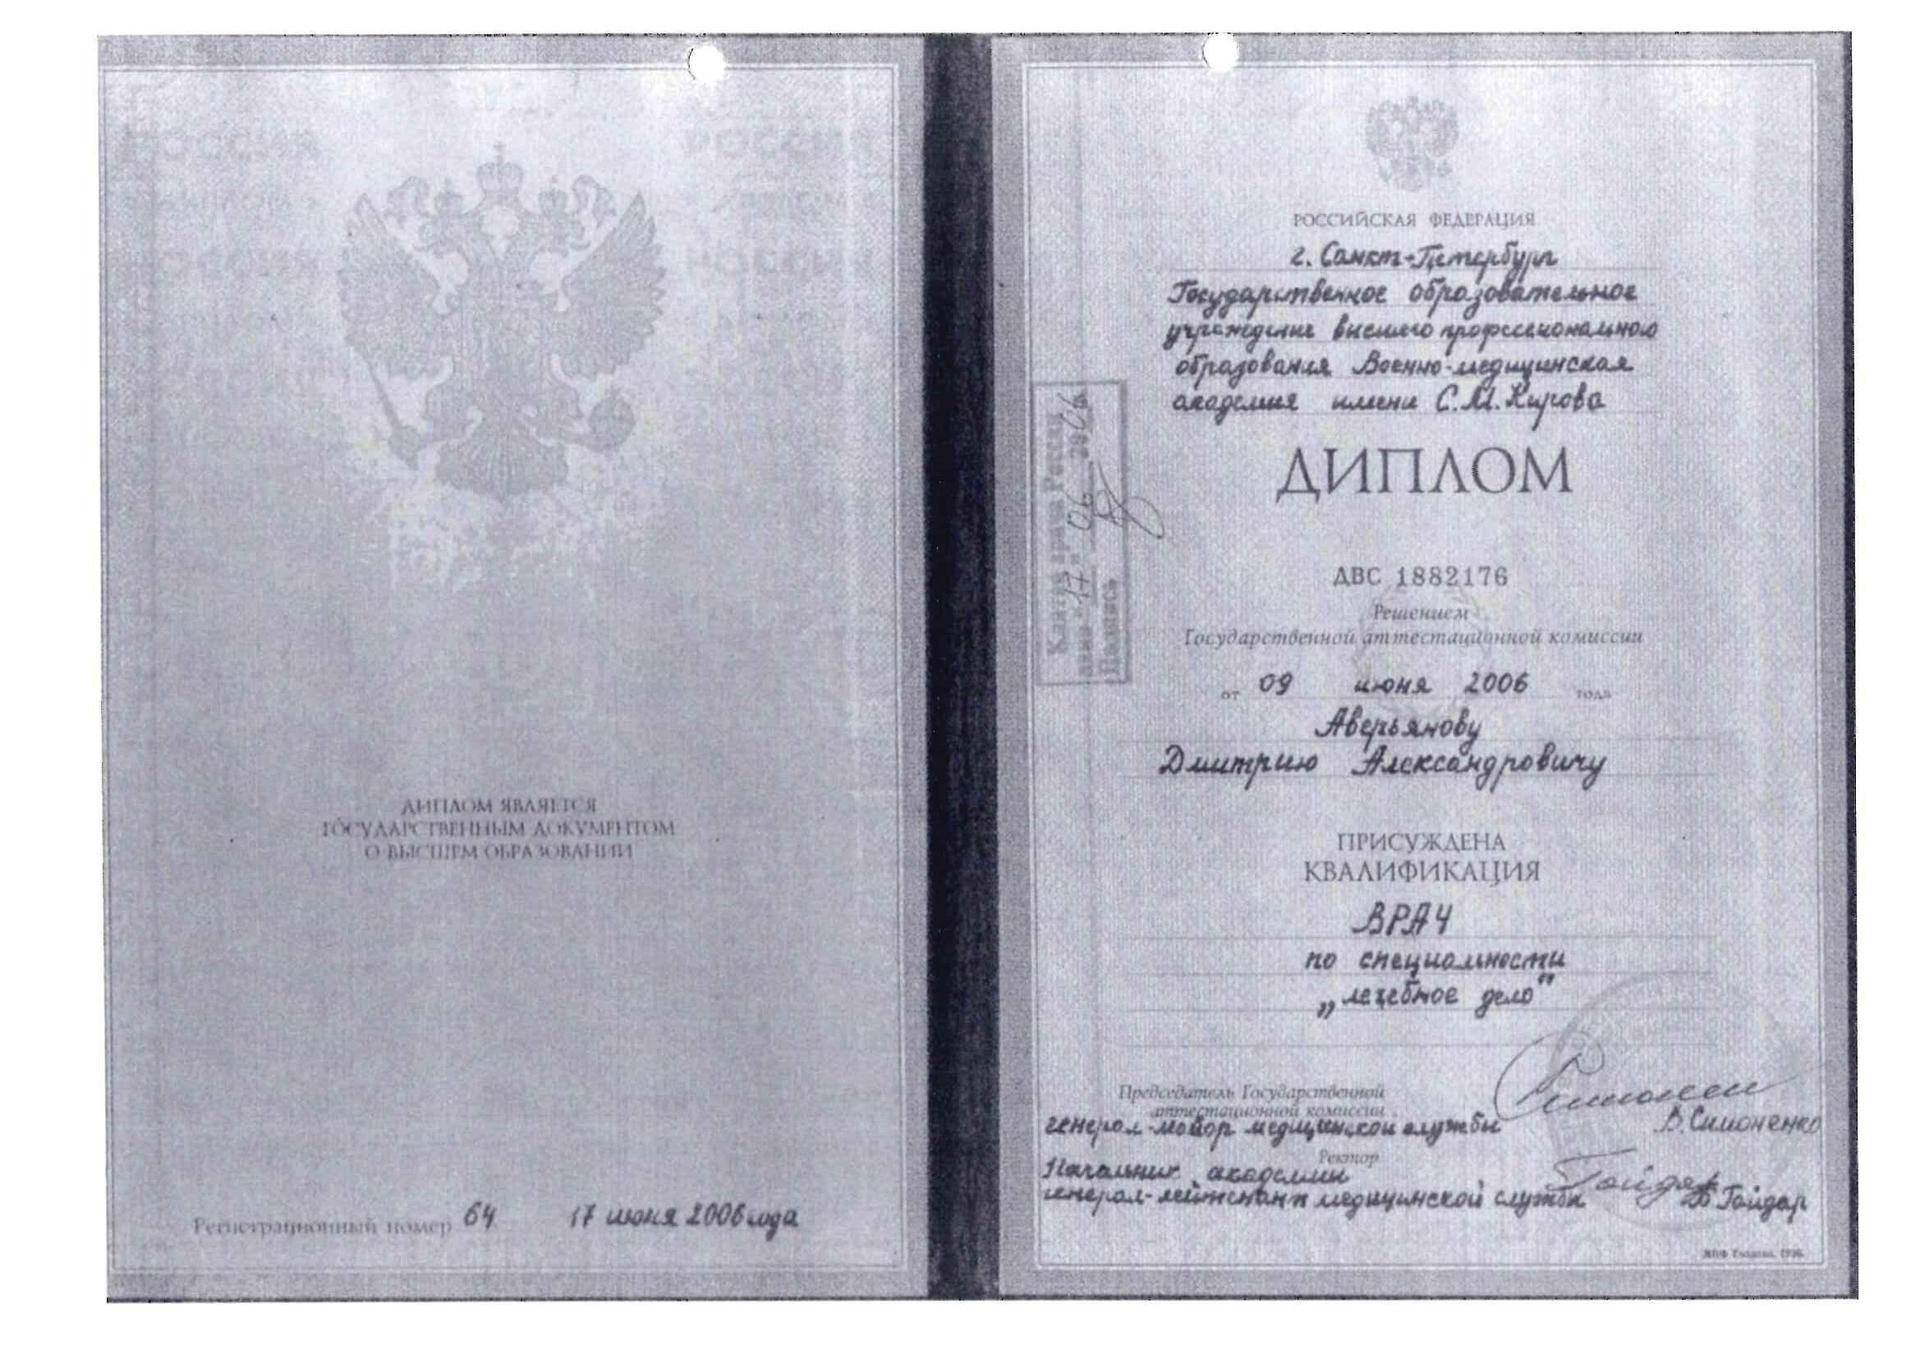 РОССИЯ
РОССИЯ
РОССИЯ
РОССИЯ
ДИПЛОМ ЯВЛЯЕТСЯ
ГОСУДАРСТВЕННЫМ ДОКУМЕНТОМ
О ВЫСШЕМ ОБРАЗОВАНИИ
Регистрационный номер 64 17 июня 2006 года
РОССИЙСКАЯ ФЕДЕРАЦИЯ
г. Санкт-Петербург
Государственное образовательное
учреждение высшего профессионального
образования Военно-медицинская
академия имени С.М. Кирова
ДИПЛОМ
ДВС 1882176
Решением
Государственной аттестационной комиссии
от 09 июня 2006 года
Аверьянову
Дмитрию Александровичу
ПРИСУЖДЕНА
КВАЛИФИКАЦИЯ
ВРАЧ
по специальности
„лечебное дело"
Председатель Государственной
аттестационной комиссии
генерал-майор медицинской службы В. Симоненко
Ректор
Начальник академии
генерал-лейтенант медицинской службы Б. Гайдар
Клятва врача России
дана "17" 06 2006
Подпись